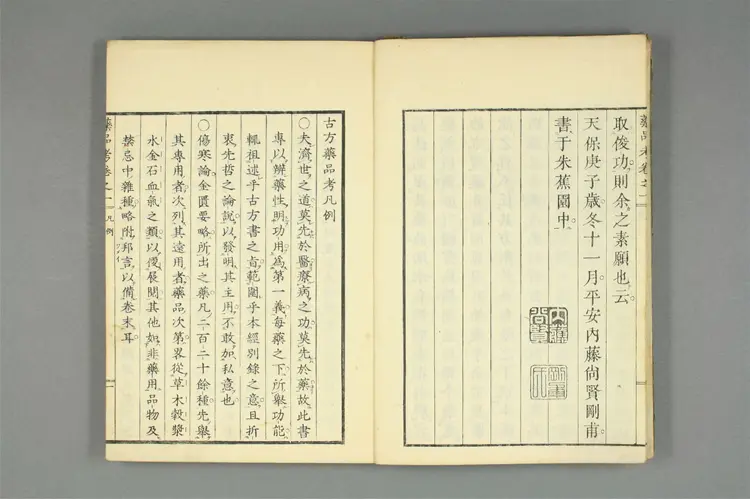 取俊功則余之素願也云
天保庚子歳冬十一月平安內藤尙賢剛甫
書于朱蕉園中
藥品考卷之一
古方藥品考凡例
○夫濟世之道莫先於醫療病之功莫先於藥故此書
專以辨藥性明功用爲第一義每藥之下所舉功能
輒祖述乎古方書之旨範圍乎本經別錄之意且折
衷先哲之論說以發明其主用不敢加私意也
○傷寒論金匱要略所出之藥凡二百二十餘種先舉
其專用者次列其遠用者藥品次第畧從草木穀漿
水金石血氣之類以便展閱其他如非藥用品物及
禁忌中雜種略附邦言以備卷末耳
藥品考卷之一 凡例 一